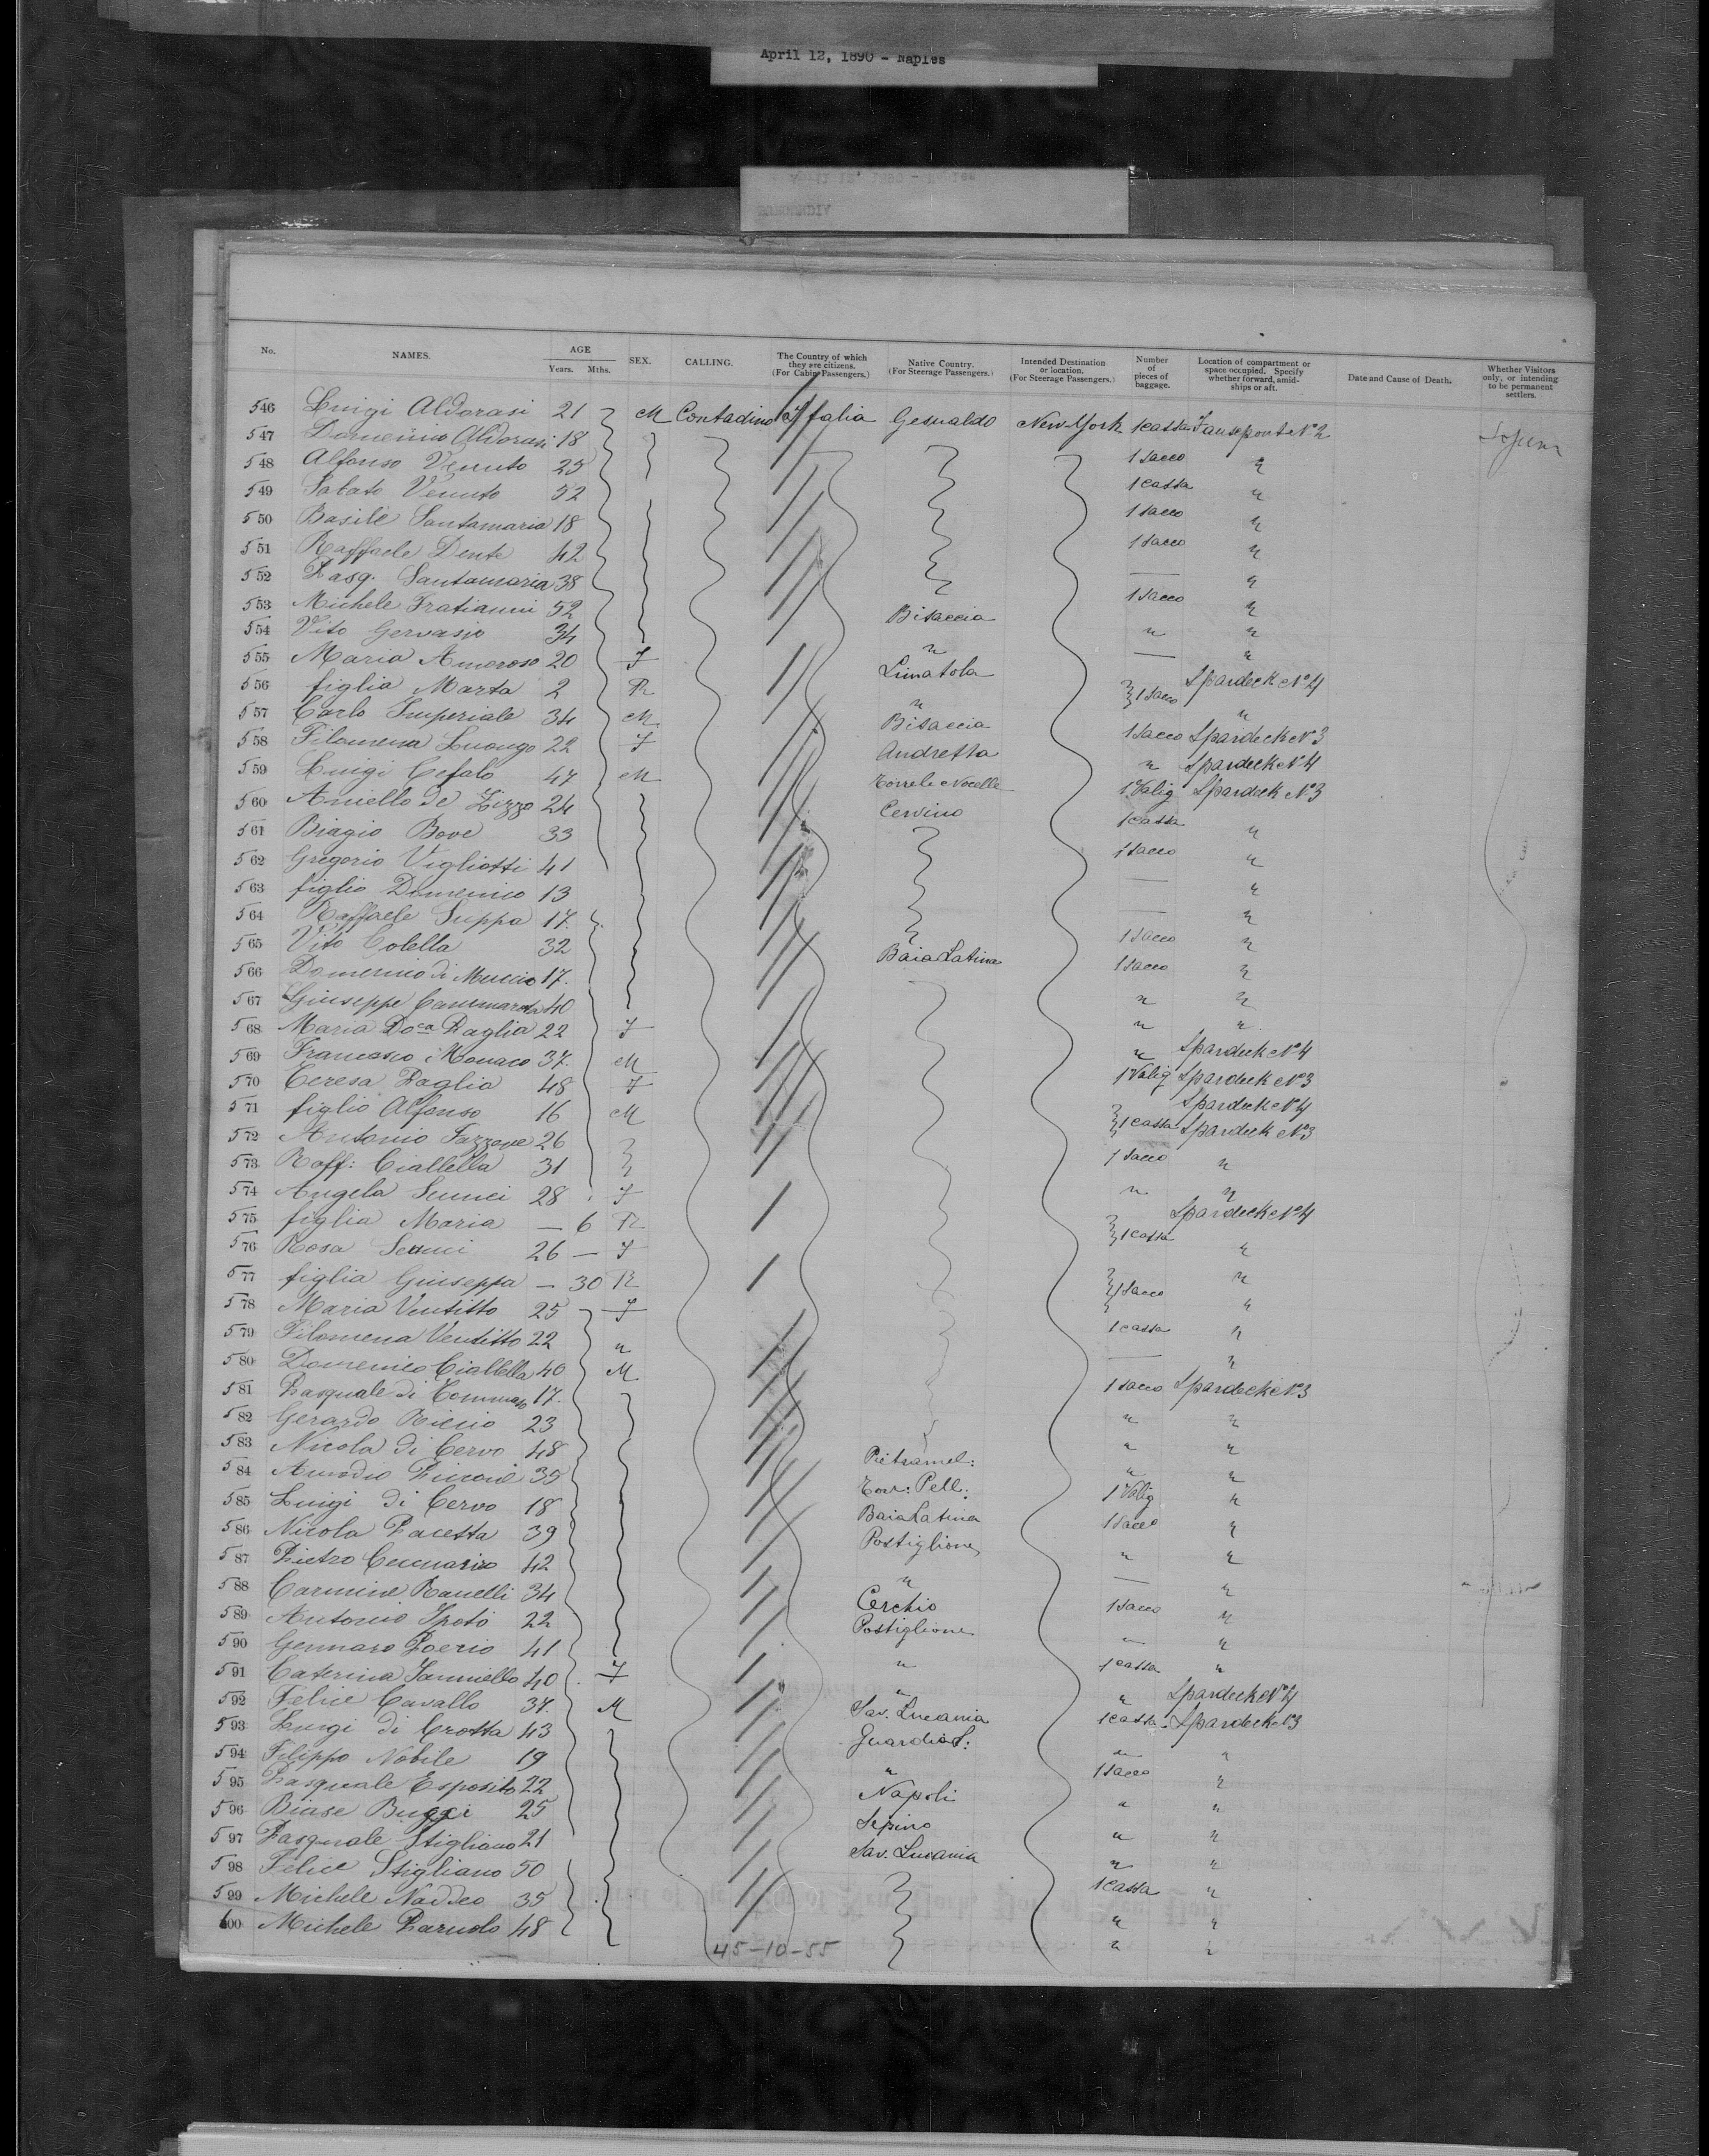 April 12, 1890 - Naples
No. NAMES. AGE Years. Mths. SEX. CALLING. The Country of which they are citizens. (For Cabin Passengers.) Native Country. (For Steerage Passengers.) Intended Destination or location. (For Steerage Passengers.) Number of pieces of baggage. Location of compartment or space occupied. Specify whether forward, amidships or aft. Date and Cause of Death. Whether Visitors only, or intending to be permanent settlers.
546 Luigi Aldorasi 21 M Contadino Italia Gesualdo New York 1 cassa N°2
547 Domenico Aldorasi 18 1 sacco "
548 Alfonso Venuto 25 1 cassa "
549 Sabato Venuto 52 1 sacco "
550 Basile Santamaria 18 1 sacco "
551 Raffaele Dente 42 — "
552 Pasq. Santamaria 38 1 sacco "
553 Michele Fratianni 52 Bisaccia " "
554 Vito Gervasio 34 " — "
555 Maria Amoroso 20 F Limatola Spardeck N°4
556 figlia Marta 2 " 1 sacco "
557 Carlo Imperiale 34 M Bisaccia 1 sacco Spardeck N°3
558 Filomena Luongo 22 F Andretta " Spardeck N°4
559 Luigi Cefalo 47 M Torre le Nocelle 1 Valig Spardeck N°3
560 Aniello de Lizzo 24 Cervino 1 cassa "
561 Biagio Bove 33 1 sacco "
562 Gregorio Vigliotti 41 — "
563 figlio Domenico 13 — "
564 Raffaele Suppa 17 1 sacco "
565 Vito Colella 32 Baia Latina 1 sacco "
566 Domenico di Muccio 17 " "
567 Giuseppe 40 " "
568 Maria Doca Paglia 22 F " Spardeck N°4
569 Francesco Monaco 37 M 1 Valig Spardeck N°3
570 Teresa Paglia 48 F Spardeck N°4
571 figlio Alfonso 16 M 1 cassa Spardeck N°3
572 Antonio Fazzone 26 1 sacco "
573 Raff: Ciallella 31 " "
574 Angela 28 F Spardeck N°4
575 figlia Maria — 6 1 cassa "
576 Rosa 26 — F "
577 figlia Giuseppa — 30 1 sacco "
578 Maria Ventitto 25 F 1 cassa "
579 Filomena Ventitto 22 " — "
580 Domenico Ciallella 40 M 1 sacco Spardeck N°3
581 Pasquale di Tommaso 17 " "
582 Gerardo Riccio 23 " "
583 Nicola di Cervo 48 Pietramel: " "
584 Amodio 35 Pell: 1 Valig "
585 Luigi di Cervo 18 Baia Latina 1 sacco "
586 Nicola Pacetta 39 Postiglione " "
587 Pietro 42 " — "
588 Carmine Ranelli 34 Cerchio 1 sacco "
589 Antonio Spoto 22 Postiglione " "
590 Gennaro Poerio 41 " 1 cassa "
591 Caterina Ianniello 40 F " " Spardeck N°4
592 Felice Cavallo 37 M Sav. Lucania 1 cassa Spardeck N°3
593 Luigi di Crosta 43 Guardia S: " "
594 Filippo Nobile 19 " 1 sacco "
595 Pasquale Esposito 22 Napoli " "
596 Biase Buggi 25 Sepino " "
597 Pasquale Stigliano 21 Sav. Lucania " "
598 Felice Stigliano 50 1 cassa "
599 Michele Naddeo 35 " "
600 Michele Paruolo 48 " "
45-10-55